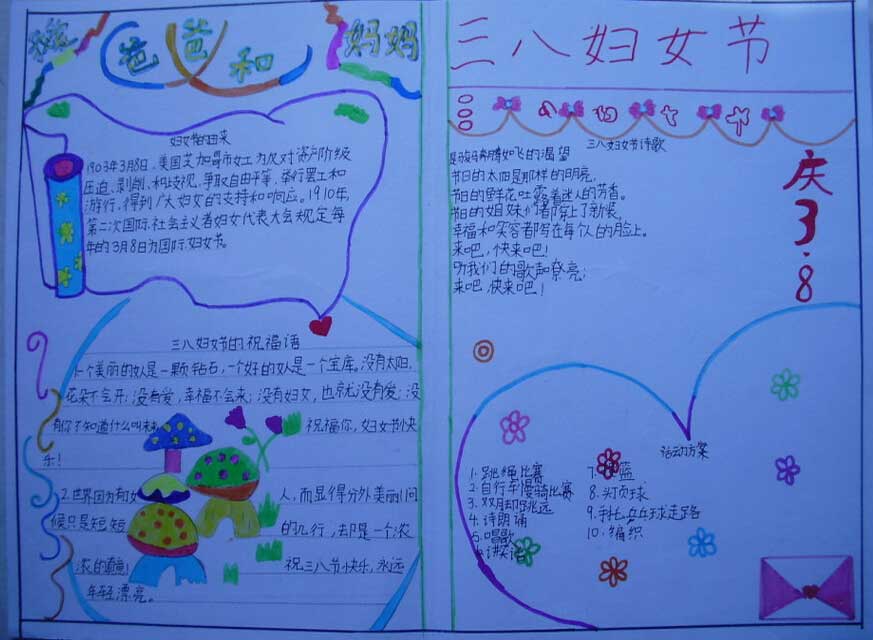 爸爸和妈妈
妇女节的由来
1903年3月8日,美国芝加哥市女工为反对资产阶级
压迫、剥削、和歧视、争取自由平等,举行罢工和
游行,得到广大妇女的支持和响应。1910年,
第二次国际社会主义者妇女代表大会规定每
年的3月8日为国际妇女节。
三八妇女节的祝福语
1.一个美丽的女人是一颗钻石,一个好的女人是一个宝库。没有太阳,
花朵不会开;没有爱,幸福不会来;没有妇女,也就没有爱;没
有你不知道什么叫 祝福你,妇女节快
乐!
2.世界因为有女 人,而显得分外美丽!问
候只是短短 的几行,却是一个浓
浓的 祝三八节快乐,永远
年轻漂亮。
三八妇女节
三八妇女节诗歌
是骏马奔腾如飞的渴望
节日的太阳是那样的明亮,
节日的鲜花吐露着迷人的芳香。
节日的姐妹们都穿上了新装,
幸福和笑容都写在每个人的脸上。
来吧,快来吧!
听我们的歌声嘹亮;
来吧,快来吧!
庆3.8
活动方案
1.跳绳比赛
2.自行车慢骑比赛
3.双脚跳远
4.诗朗诵
5.唱歌
6.讲笑话
7. 篮
8.头顶球
9.手托乒乓球走路
10.编织